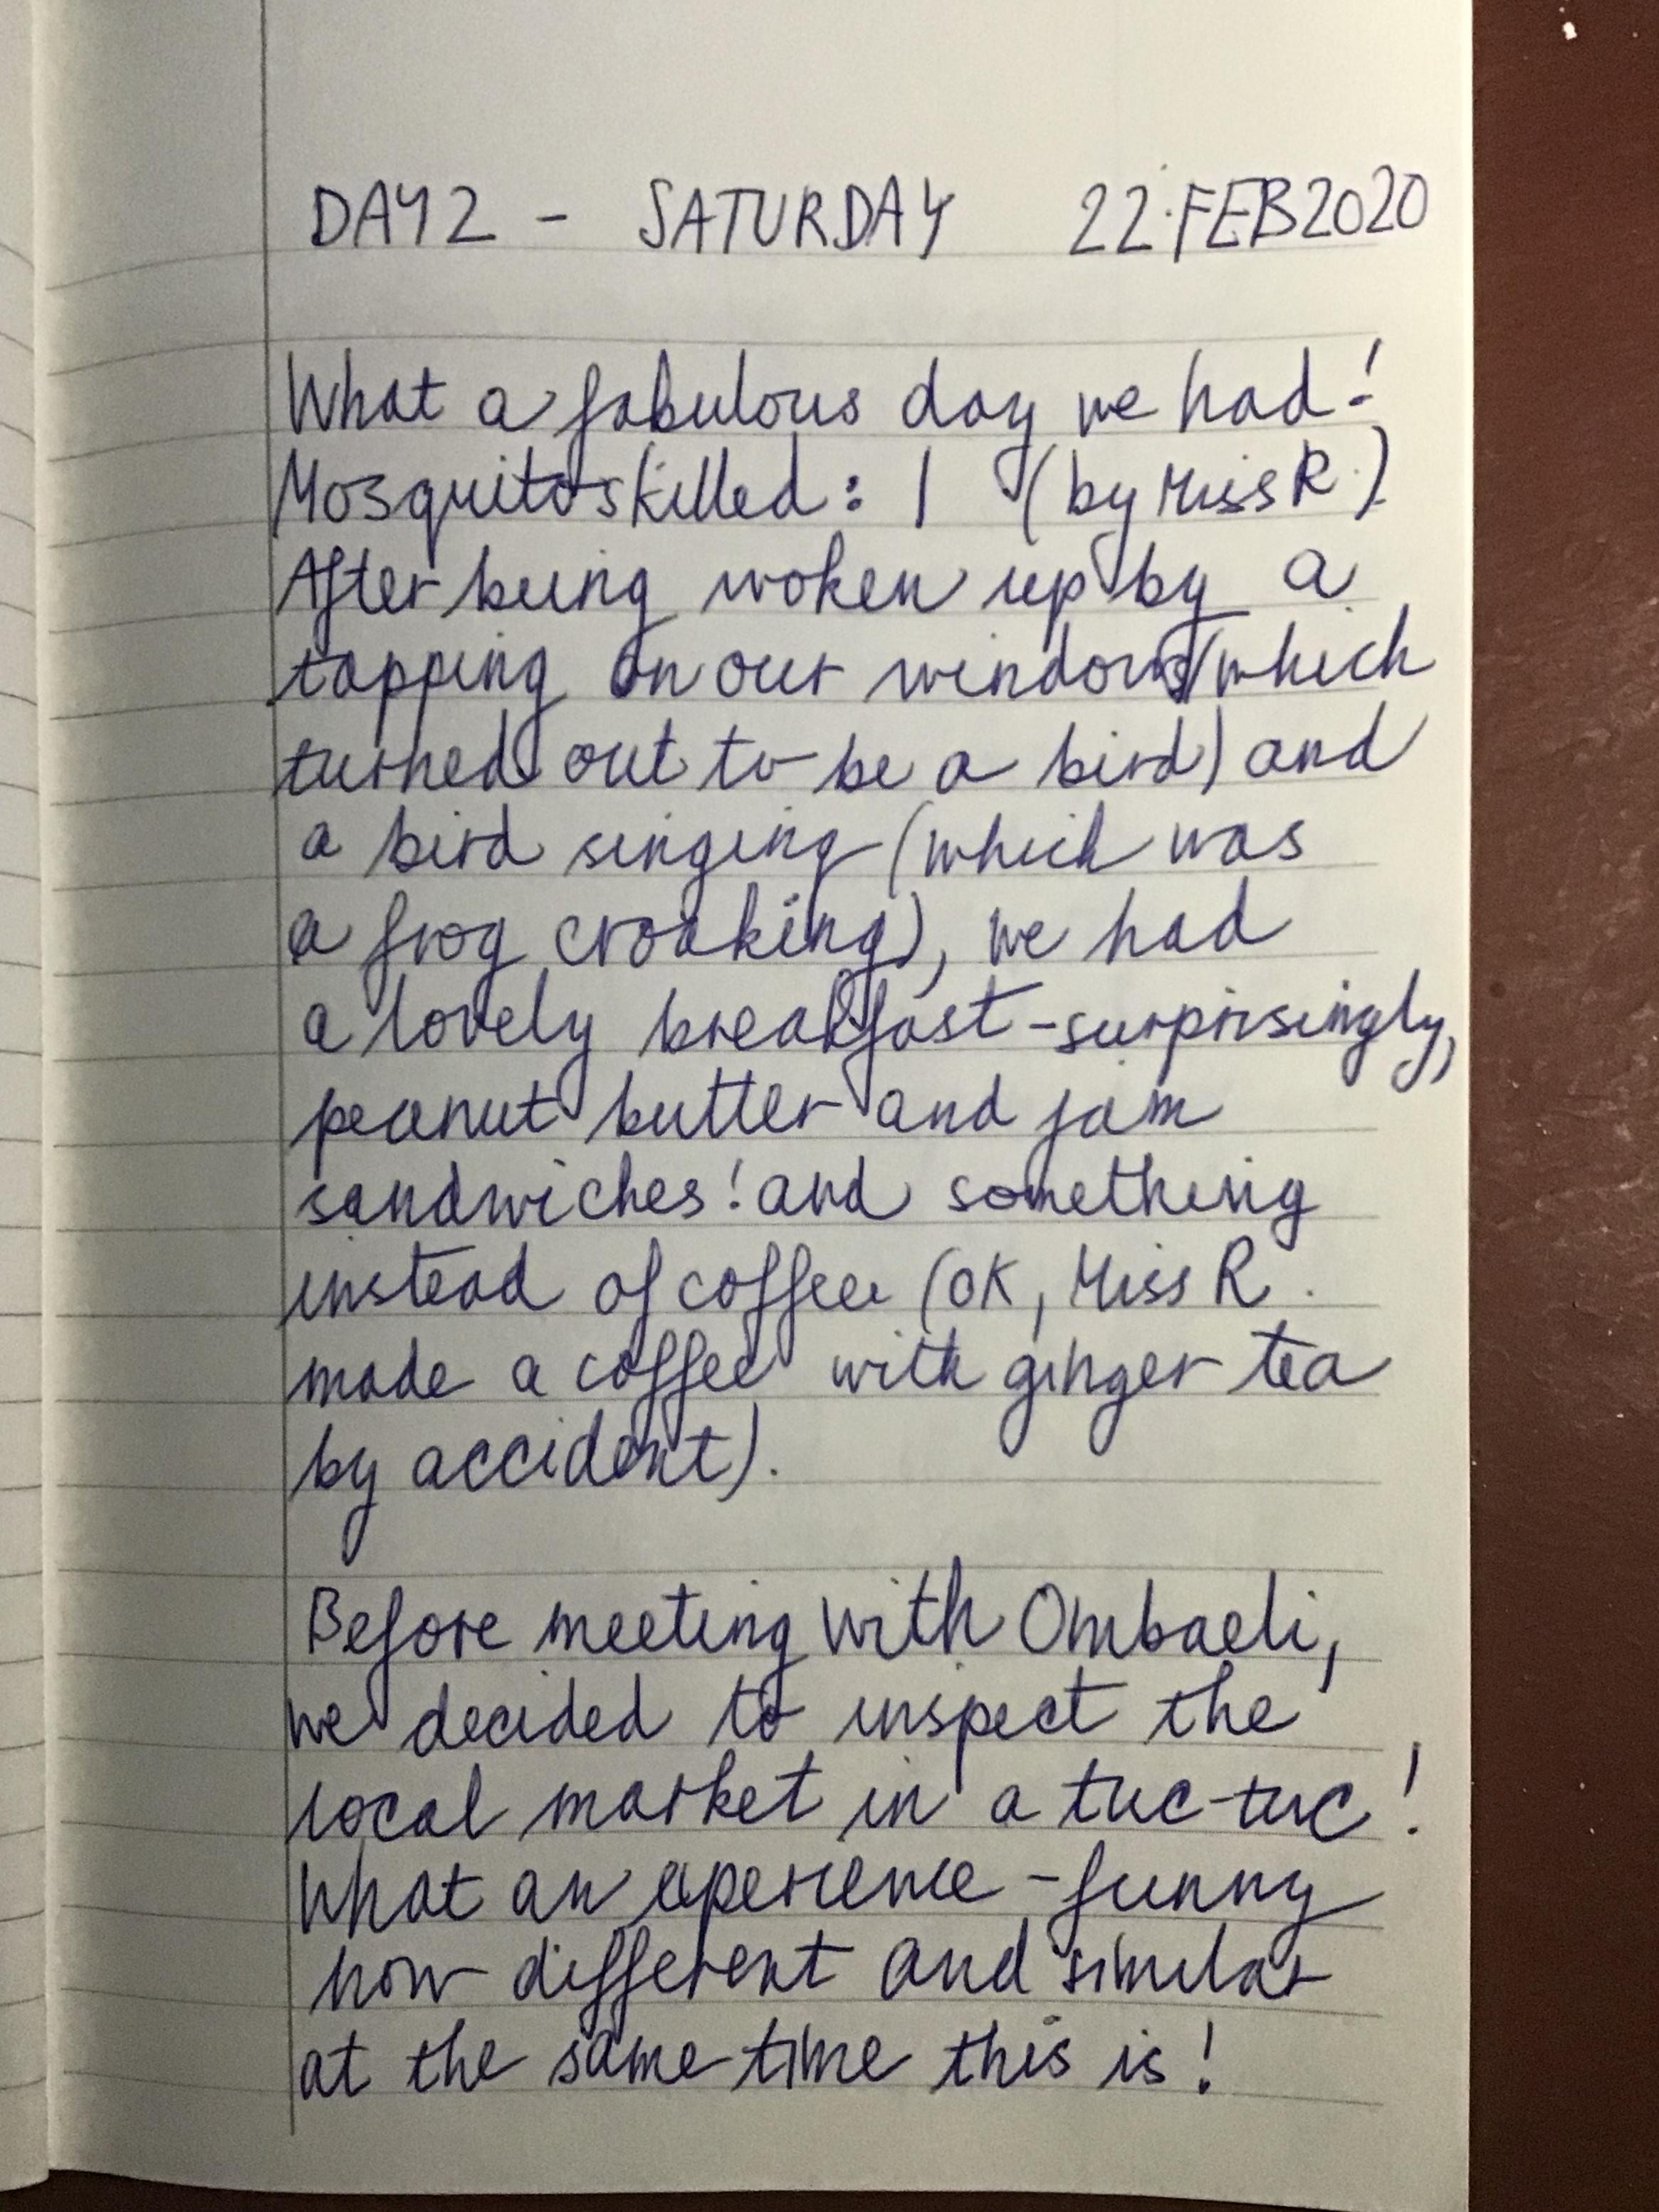 DAY 2 - SATURDAY 22.FEB2020
What a fabulous day we had!
Mosquitos killed: 1 (by Miss R.)
After being woken up by a
tapping on our windows (which
turned out to be a bird) and
a bird singing (which was
a frog croaking), we had
a lovely breakfast - surprisingly,
peanut butter and jam
sandwiches! and something
instead of coffee (OK, Miss R.
made a coffee with ginger tea
by accident).
Before meeting with Ombaeli,
we decided to inspect the
local market in a tuc-tuc!
What an experience - funny
how different and similar
at the same time this is!